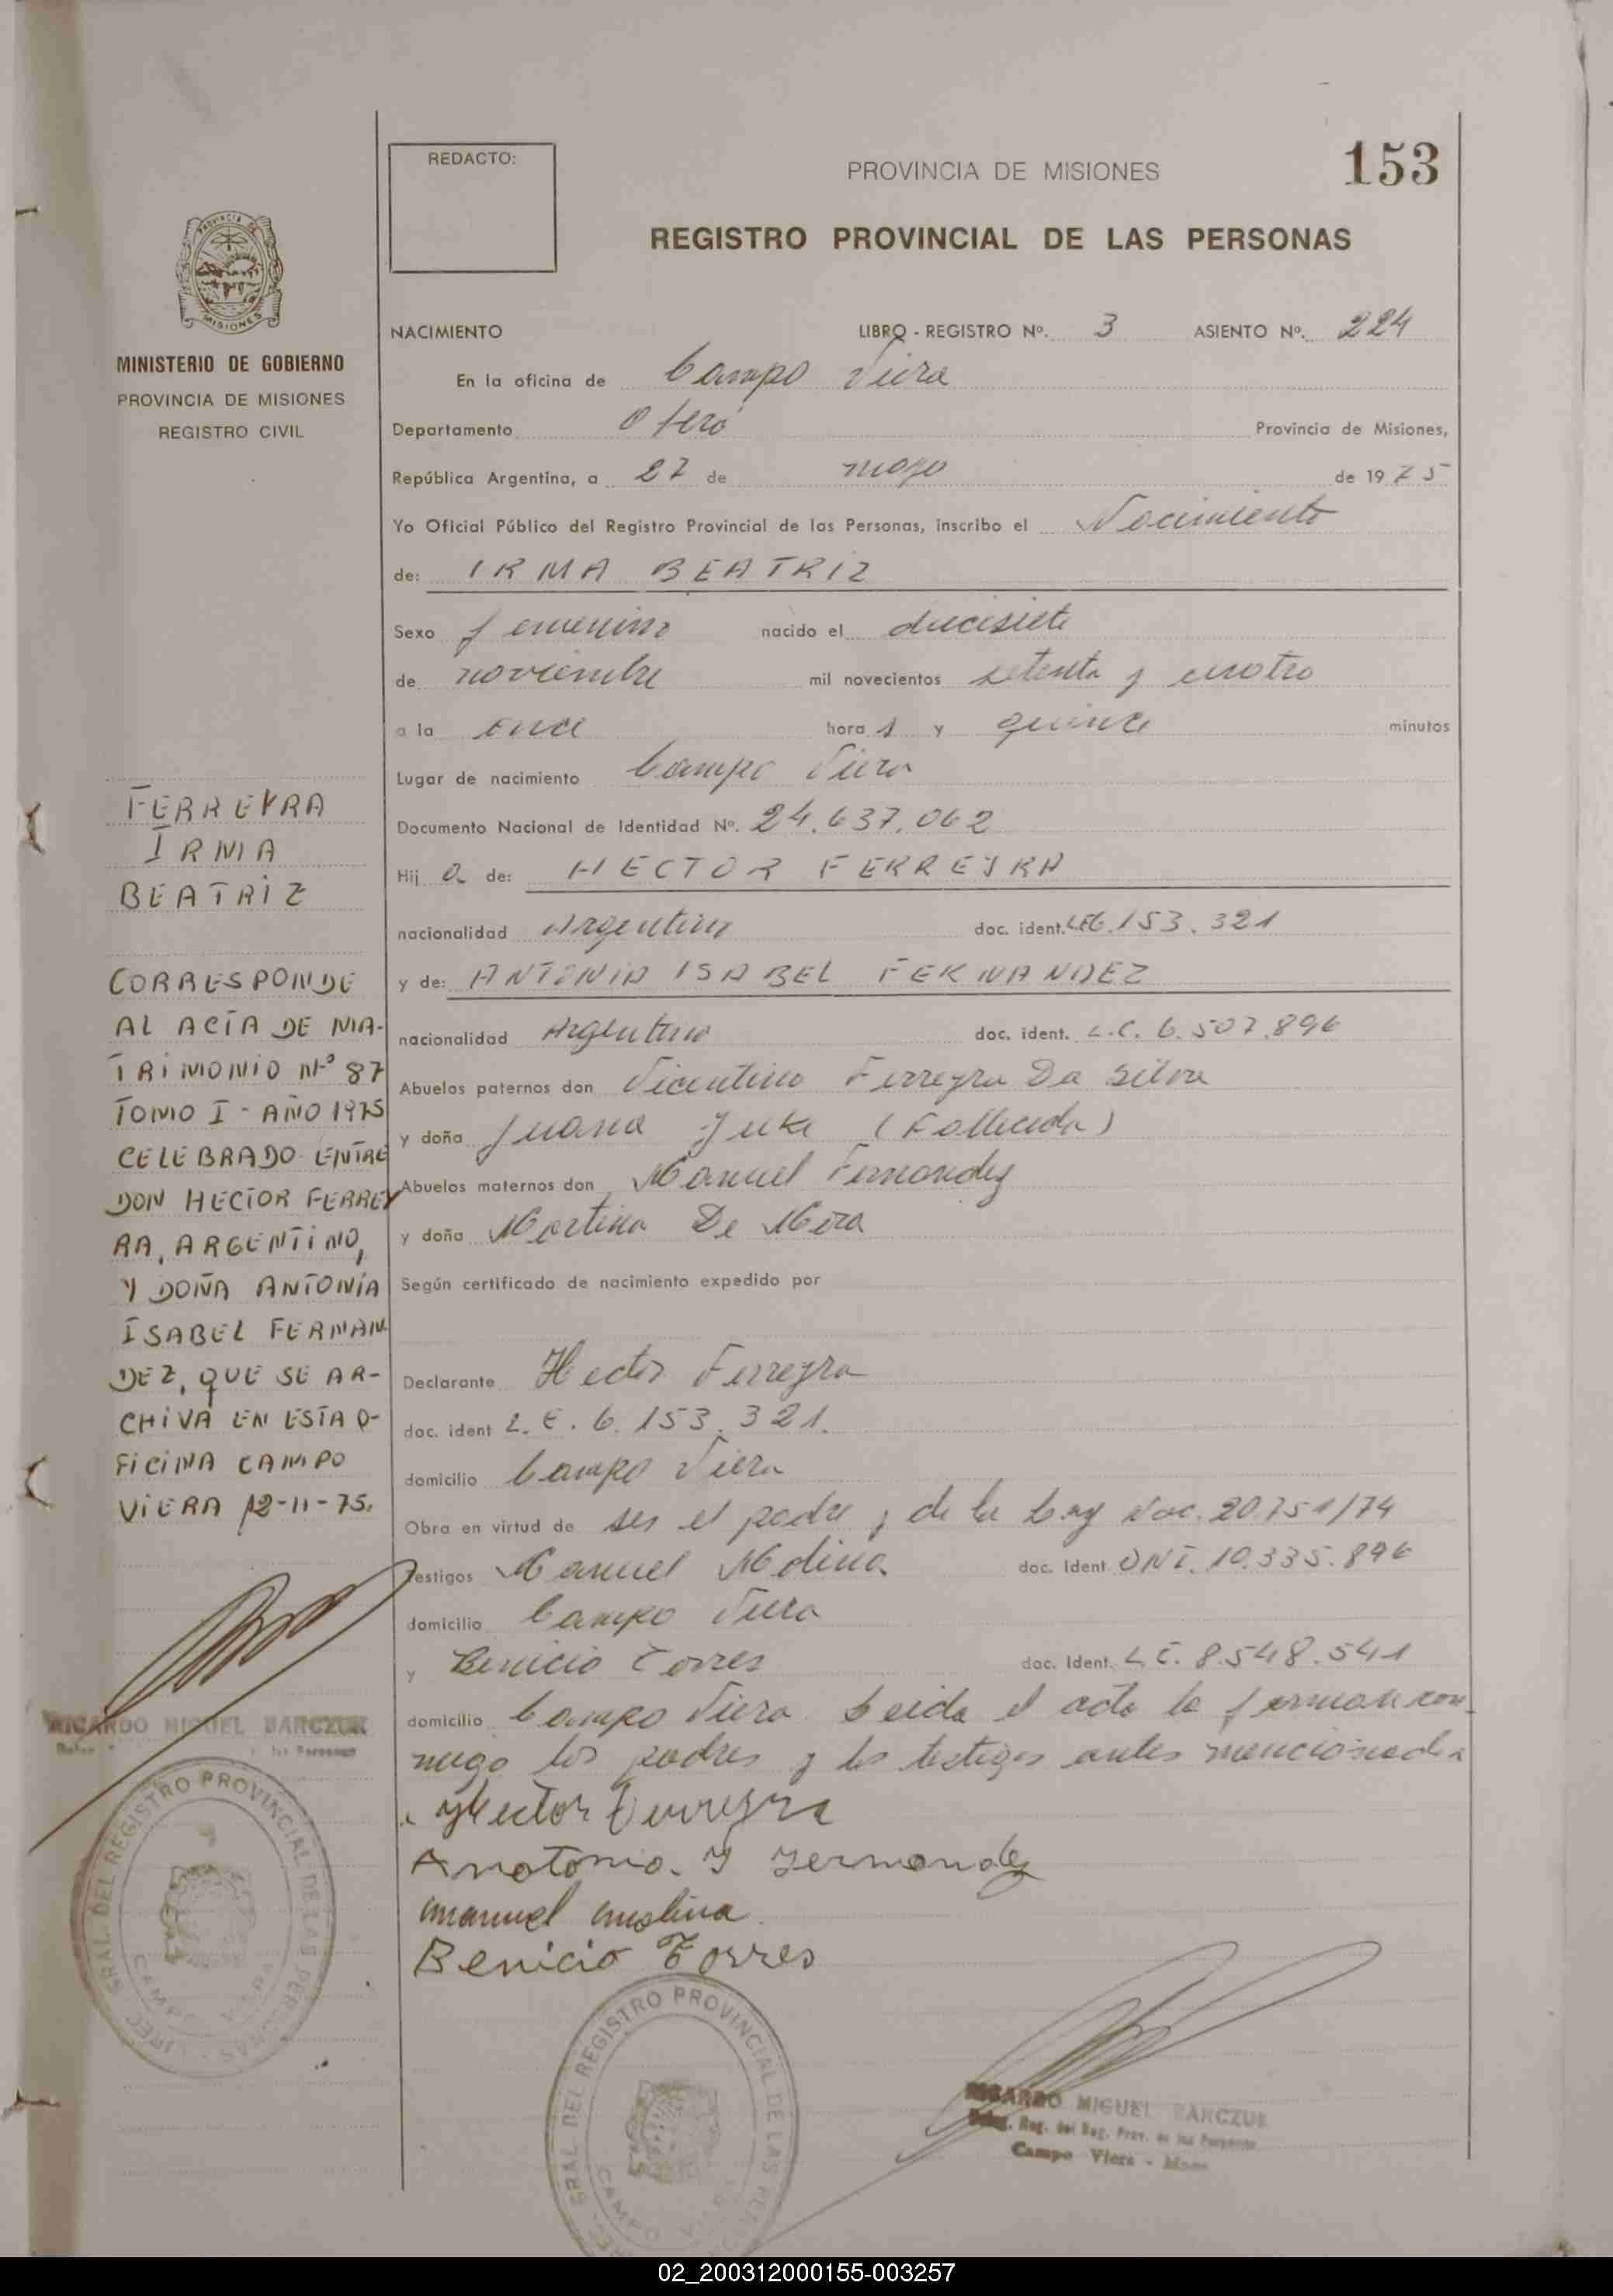 REDACTO:
PROVINCIA DE MISIONES
153
REGISTRO PROVINCIAL DE LAS PERSONAS
PROVINCIA DE
MISIONES
MINISTERIO DE GOBIERNO
PROVINCIA DE MISIONES
REGISTRO CIVIL
NACIMIENTO LIBRO - REGISTRO Nº. 3 ASIENTO Nº. 224
En la oficina de Campo Viera
Departamento Oberá Provincia de Misiones,
República Argentina, a 27 de mayo de 1975
Yo Oficial Público del Registro Provincial de las Personas, inscribo el Nacimiento
de: IRMA BEATRIZ
Sexo femenino nacido el diecisiete
de noviembre mil novecientos setenta y cuatro
a la once hora s y quince minutos
Lugar de nacimiento Campo Viera
Documento Nacional de Identidad Nº. 24.637.062
Hij a de: HECTOR FERREYRA
nacionalidad Argentino doc. ident. L.E 6.153.321
y de: ANTONIA ISABEL FERNANDEZ
nacionalidad Argentina doc. ident. L.C. 6.507.896
Abuelos paternos don Vicentino Ferreyra Da Silva
y doña Juana (Fallecida)
Abuelos maternos don Manuel Fernandez
y doña Martina De
Según certificado de nacimiento expedido por
Declarante Hector Ferreyra
doc. ident L.E. 6.153.321.
domicilio Campo Viera
Obra en virtud de ser el padre y de la Ley Nac. 20.751/74
Testigos Manuel Molina doc. Ident. DNI. 10.335.896
domicilio Campo Viera
y Benicio Torres doc. Ident. L.E. 8.548.541
domicilio Campo Viera. Leida el acta la firman con-
migo los padres y los testigos antes mencionados
Hector Ferreyra
Anotonia. Y Fernandez
manuel molina
Benicio Torres
FERREYRA
IRMA
BEATRIZ
CORRESPONDE
AL ACTA DE MA-
TRIMONIO Nº 87
TOMO I - AÑO 1975
CELEBRADO ENTRE
DON HECTOR FERREY
RA, ARGENTINO,
Y DOÑA ANTONIA
ISABEL FERNAN
DEZ, QUE SE AR-
CHIVA EN ESTA O-
FICINA CAMPO
VIERA 12-11-75.
RICARDO MIGUEL BARCZUK
GRAL. DEL REGISTRO PROVINCIAL DE LAS PERSONAS
CAMPO VIERA
GRAL. DEL REGISTRO PROVINCIAL DE LAS
CAMPO VIERA
RICARDO MIGUEL BARCZUK
Deleg. Reg. del Reg. Prov. de las Personas
Campo Viera - Mnes
02_200312000155-003257